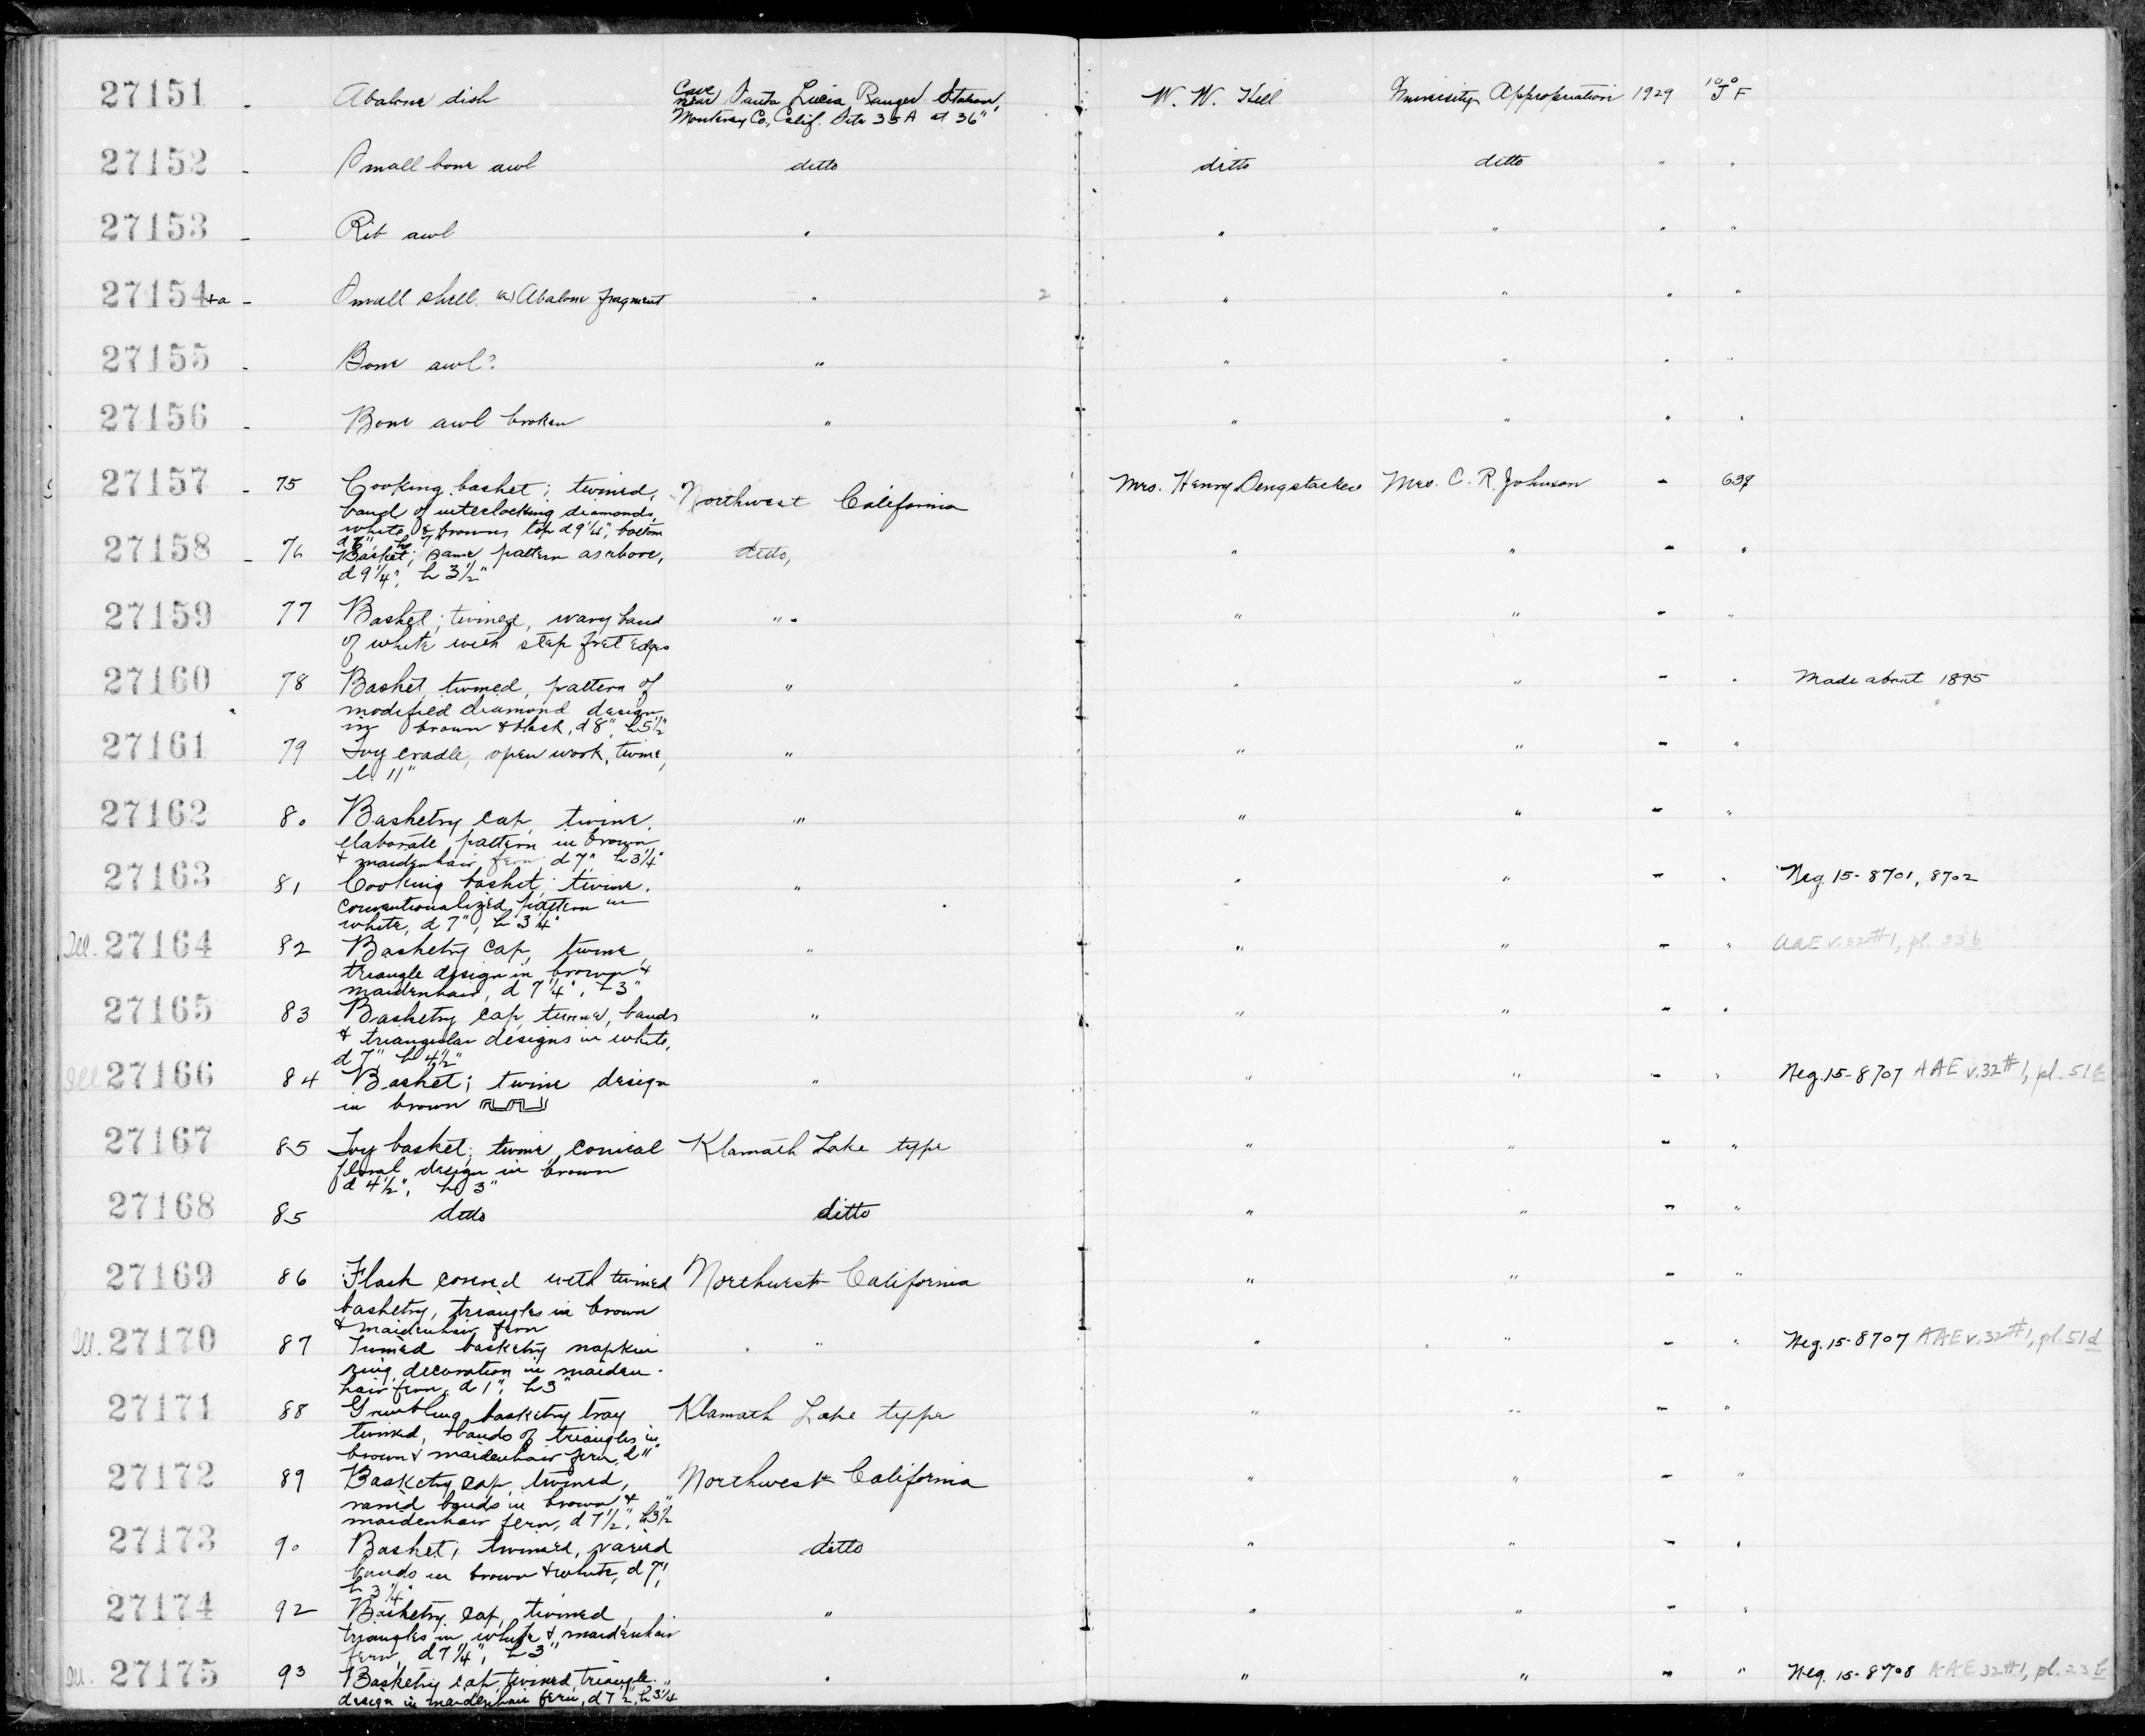 27151 - Abalone dish Cave near Santa Lucia Ranger Station, Monterey Co., Calif. Site 35A at 36" W. W. Hill University Appropriation 1929 F
27152 - Small bone awl ditto ditto ditto " "
27153 - Rib awl " " " " "
27154+a - Small shell. (a) Abalone fragment " 2 " " " "
27155 - Bone awl? " " " " "
27156 - Bone awl broken " " " " "
27157 - 75 Cooking basket; twined, Northwest California Mrs. Henry Dengstacken Mrs. C. R. Johnson -
band of interlocking diamonds,
white & brown, top d 9¼", bottom
27158 - 76 Basket; same pattern as above, ditto, " " - "
d 9¼", h 3½"
27159 77 Basket; twined, wavy band " " " - "
of white with step fret edges
27160 78 Basket, twined, pattern of " " " - " Made about 1895
modified diamond design
in brown & black, d 8", h 5½"
27161 79 Toy cradle, open work, twine, " " " - "
l. 11"
27162 80 Basketry cap, twine, " " " - "
elaborate pattern in brown
& maidenhair fern d 7" h 3¼"
27163 81 Cooking basket; twine. " " " - " Neg. 15-8701, 8702
conventionalized pattern in
white, d 7", h 3¼"
Ill. 27164 82 Basketry cap, twine, " " " - " AAE v.32#1, pl. 33b
triangle design in brown &
maidenhair, d 7¼", h 3"
27165 83 Basketry cap, twined, bands " " " - "
& triangular designs in white,
d 7", h 4½"
Ill 27166 84 Basket; twine design " " " - " Neg. 15-8707 AAE v.32#1, pl. 51
in brown
27167 85 Toy basket; twine, conical Klamath Lake type " " - "
floral design in brown
d 4½", h 3"
27168 85 ditto ditto " " - "
27169 86 Flask covered with twined Northwest California " " - "
basketry, triangles in brown
& maidenhair fern
Ill. 27170 87 Twined basketry napkin " " " - " Neg. 15-8707 AAE v.32#1, pl. 51d
ring, decoration in maiden-
hair fern, d 1", h 3"
27171 88 Gambling basketry tray Klamath Lake type " " - "
twined, bands of triangles in
brown & maidenhair fern, d 11"
27172 89 Basketry cap, twined, Northwest California " " - "
varied bands in brown &
maidenhair fern, d 7½", h 3½"
27173 90 Basket; twined, varied ditto " " - "
bands in brown & white, d 7",
h 3¼"
27174 92 Basketry cap, twined, " " " - "
triangles in white & maidenhair
fern, d 7¼", h 3"
Ill. 27175 93 Basketry cap, twined, triangle " " " - " Neg. 15-8708 AAE 32#1, pl. 23b
design in maidenhair fern, d 7½", h 3¼"